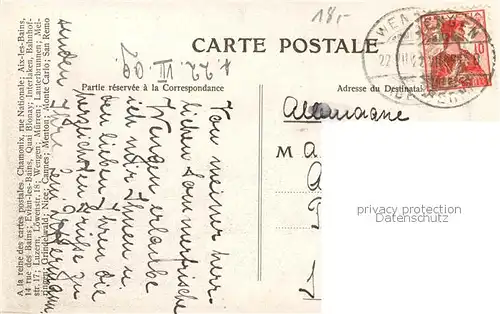 18,-
CARTE POSTALE
WENGEN
10
Partie réservée à la Correspondance
Adresse du Destinataire
d. 22. VII. 09.
Allemagne
M
Von meiner herr-
lichen Sommerfrische
Wengen erlaube
ich mir Ihnen u.
den lieben Ihren die
herzlichsten Grüße zu
senden Ihre
A la reine des cartes postales. Chamonix, rue Nationale; Aix-les-Bains,
14 rue des Bains; Evian-les-Bains, Quai Blonay; Interlaken, Bahnhof-
str. 17; Luzern, Löwenstr. 18; Wengen; Mürren; Lauterbrunnen; Mei-
ringen; Grindelwald; Nice; Cannes; Menton; Monte Carlo; San Remo
privacy protection
Datenschutz